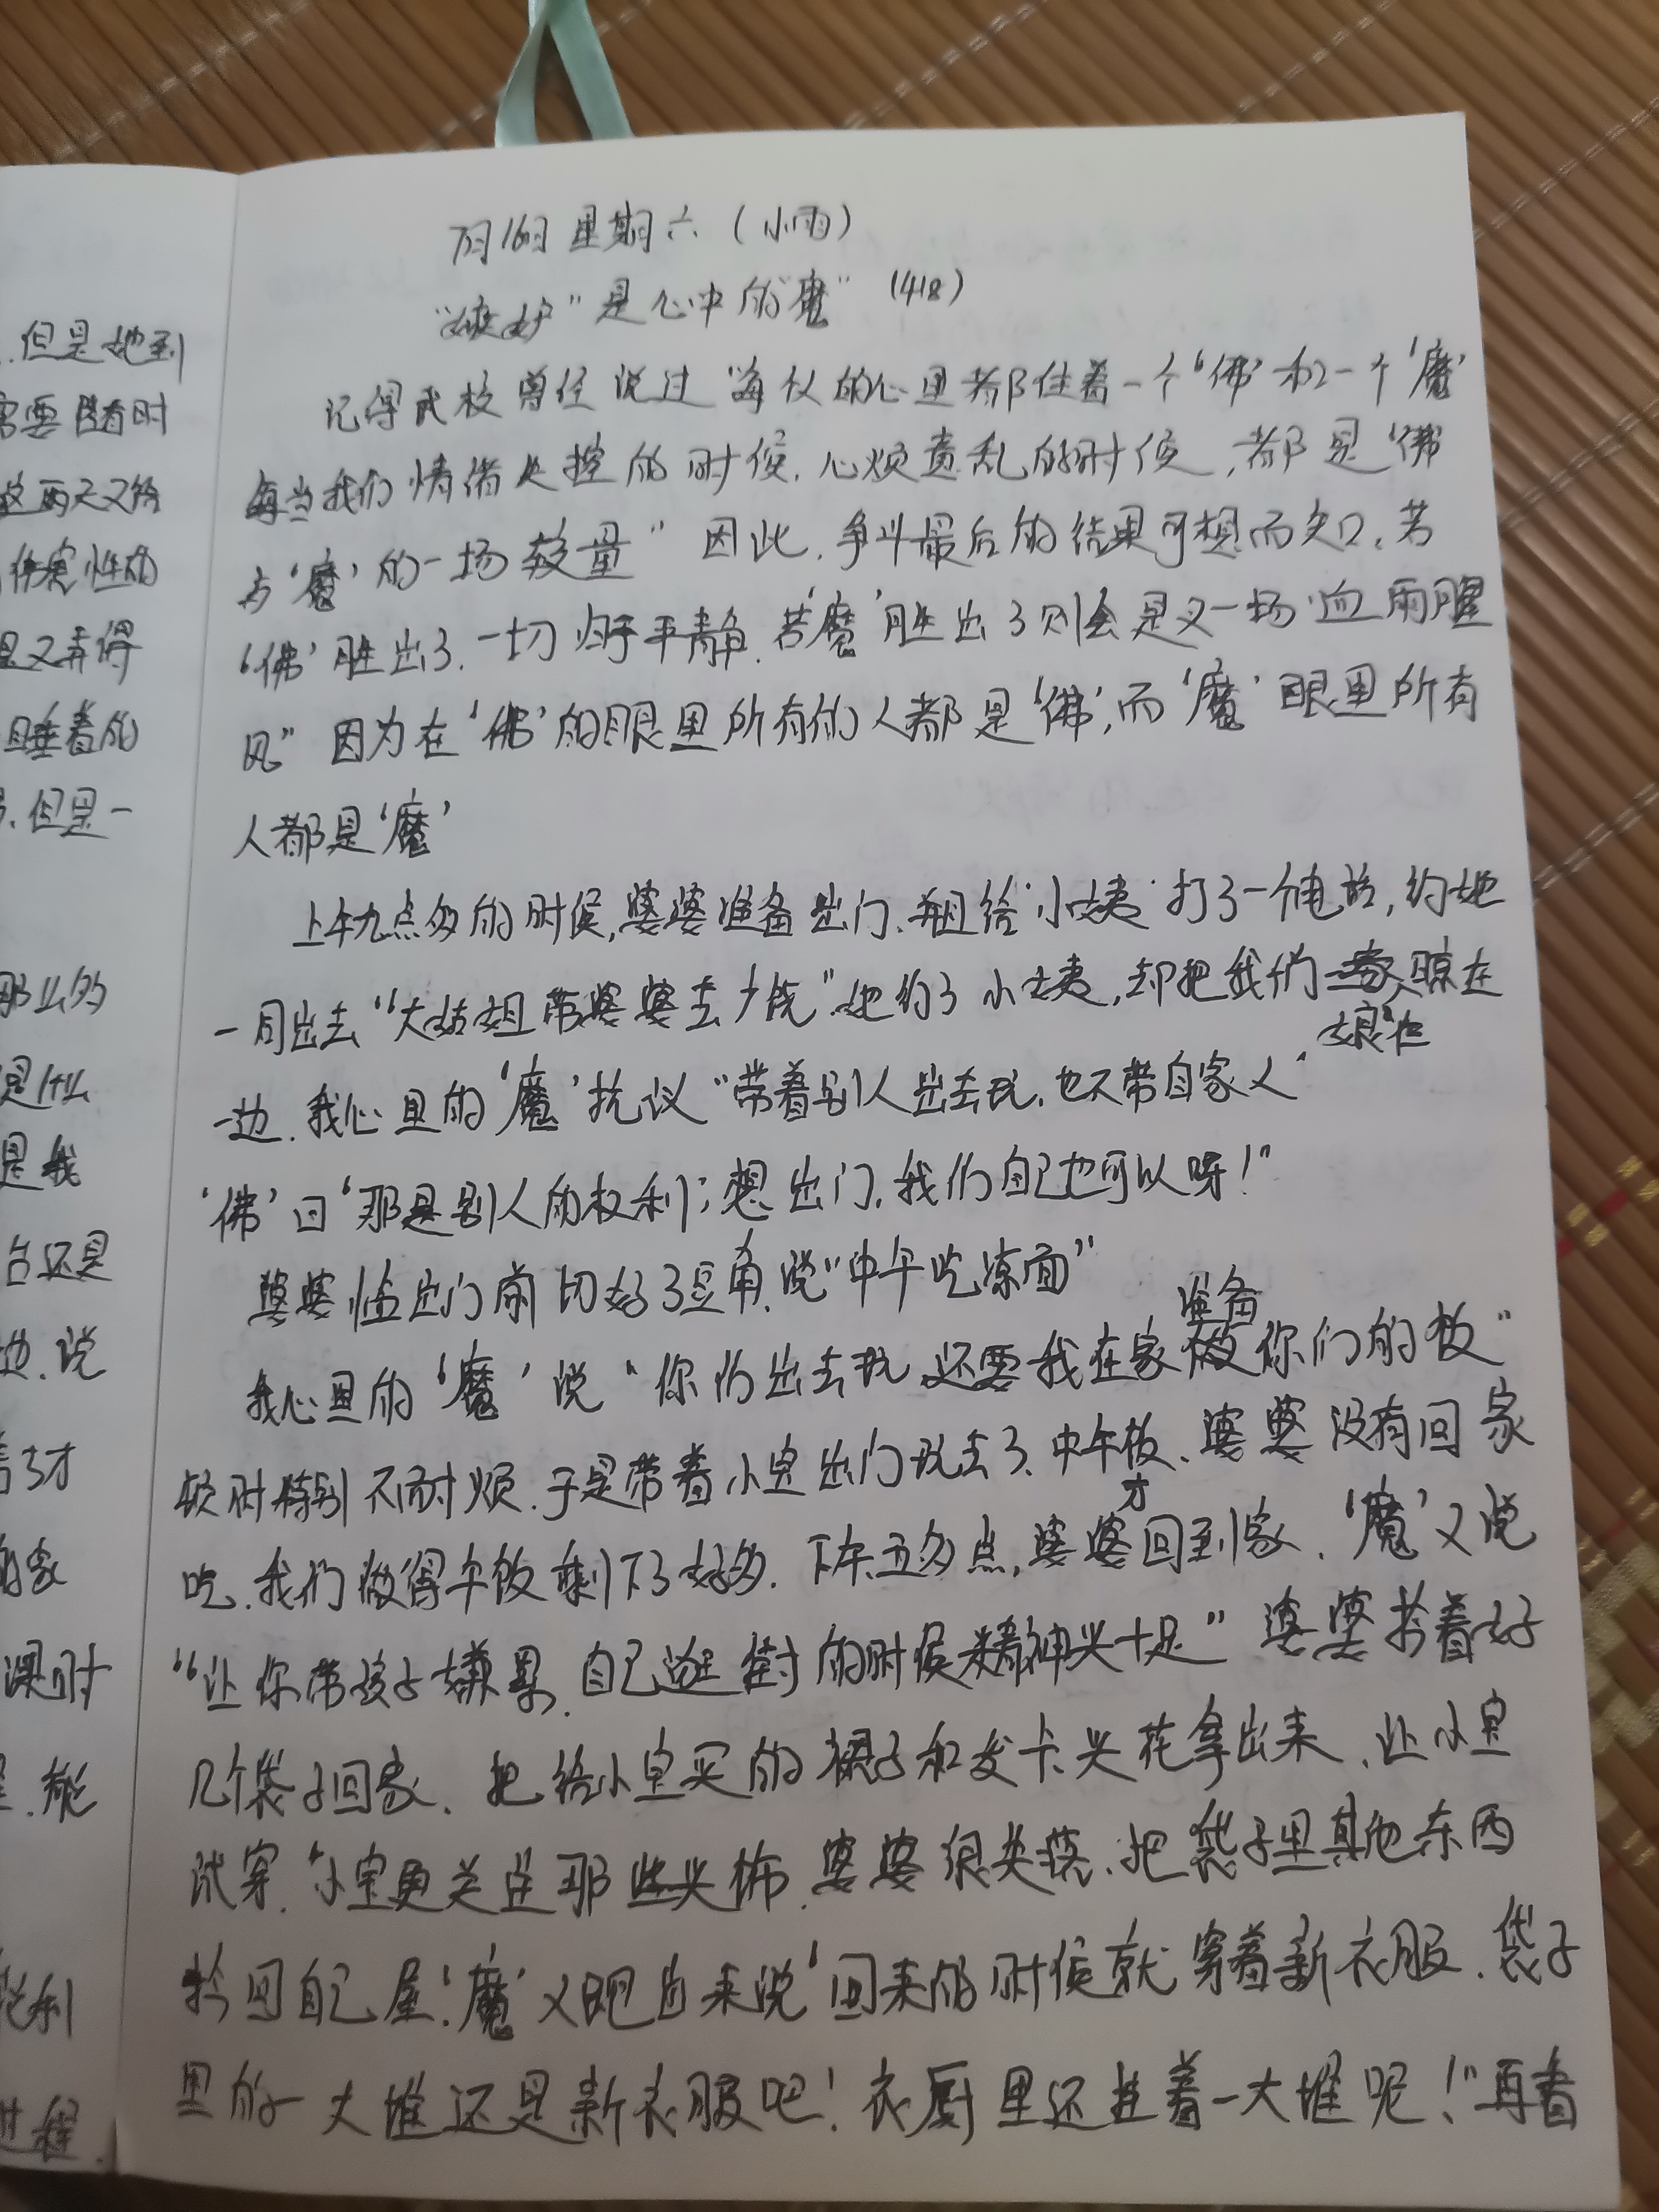 7月16日星期六（小雨）
“嫉妒”是心中的“魔”（418）
记得武校曾经说过“每个人的心里都住着一个‘佛’和一个‘魔’
每当我们情绪失控的时候，心烦意乱的时候，都是‘佛’
与‘魔’的一场较量”因此，争斗最后的结果可想而知，若
‘佛’胜出了，一切归于平静，若‘魔’胜出了则会是又一场‘血雨腥
风”因为在‘佛’的眼里所有的人都是‘佛’，而‘魔’眼里所有
人都是‘魔’
上午九点多的时候，婆婆准备出门，并且给‘小姨’打了一个电话，约她
一同出去“大姑姐带婆婆去”她约了小姨，却把我们晾在
一边，我心里的‘魔’抗议“带着别人出去玩，也不带自家人”
‘佛’曰‘那是别人的权利；想出门，我们自己也可以呀！”
婆婆临出门前切好了豆角，说“中午吃凉面”
准备
我心里的‘魔’说“你们出去玩，还要我在家做你们的饭”
顿时特别不耐烦，于是带着小宝出门玩去了，中午饭，婆婆没有回家
才
吃，我们做得午饭剩下了好多，下午五多点，婆婆回到家，‘魔’又说
“让你带孩子嫌累，自己逛街的时候精神头十足”婆婆拎着好
几个袋子回家，把给小宝买的裙子和发卡头花拿出来，让小宝
试穿，小宝更关注那些头饰，婆婆很失落，把袋子里其他东西
拎回自己屋，‘魔’又跑出来说‘回来的时候就穿着新衣服，袋子
里的一大堆还是新衣服吧！衣厨里还挂着一大堆呢！”再看
但是她到
需要随时
这两天又给
伤害性的
是又弄得
睡着的
但是一
那么的
是什么
是我
还是
边，说
着了才
的家
课时
能
利
过程